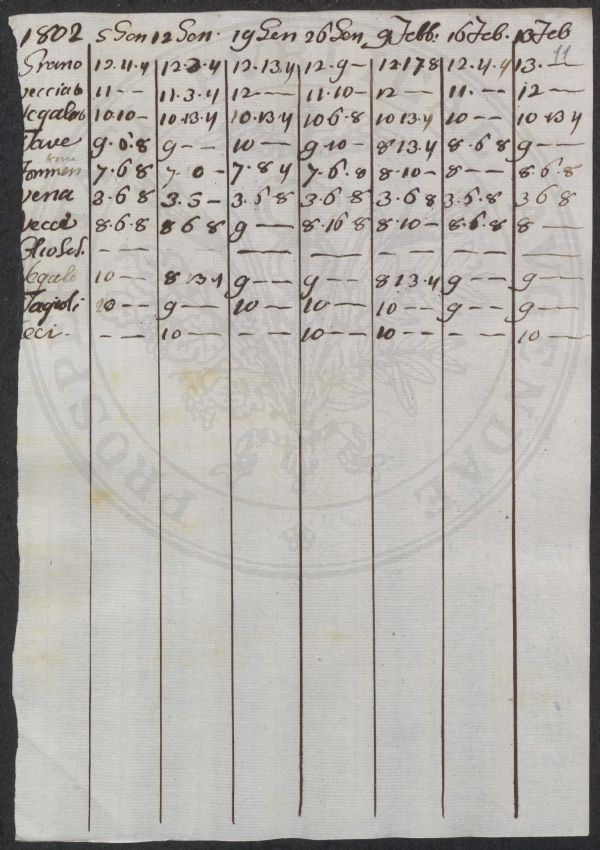 1802 5 Gen 12 Gen. 19 Gen 26 Gen. 9 Febb: 16 Feb. 13 Feb
11
Grano 12.11.4 12.2.4 12.13.4 12.9— 12.17.8 12.4.4 13.—
vecciato 11—— 11.3.4 12—— 11.10— 12— 11.— 12—
segalato 10.10— 10.13.4 10.13.4 10.6.8 10.13.4 10— 10.13.4
Fave 9.0.8 9—— 10—— 9.10— 8.13.4 8.6.8 9——
7.6.8 7.0— 7.8.4 7.6.8 8.10— 8—— 8.6.8
vena 3.6.8 3.5— 3.6.8 3.6.8 3.6.8 3.6.8 3 6 8
vecce 8.6.8 8 6 8 9— 8.16.8 8.10— 8.6.8 8—
—— —— —— —— —— ——
segale 10—— 8 13.4 9—— 9—— 8 13.4 9—— 9——
Fagioli 10—— 9—— 10—— 10—— 10—— 9—— 9——
ceci. —— 10—— —— 10—— 10—— —— 10——
PROSPI
VENDAE